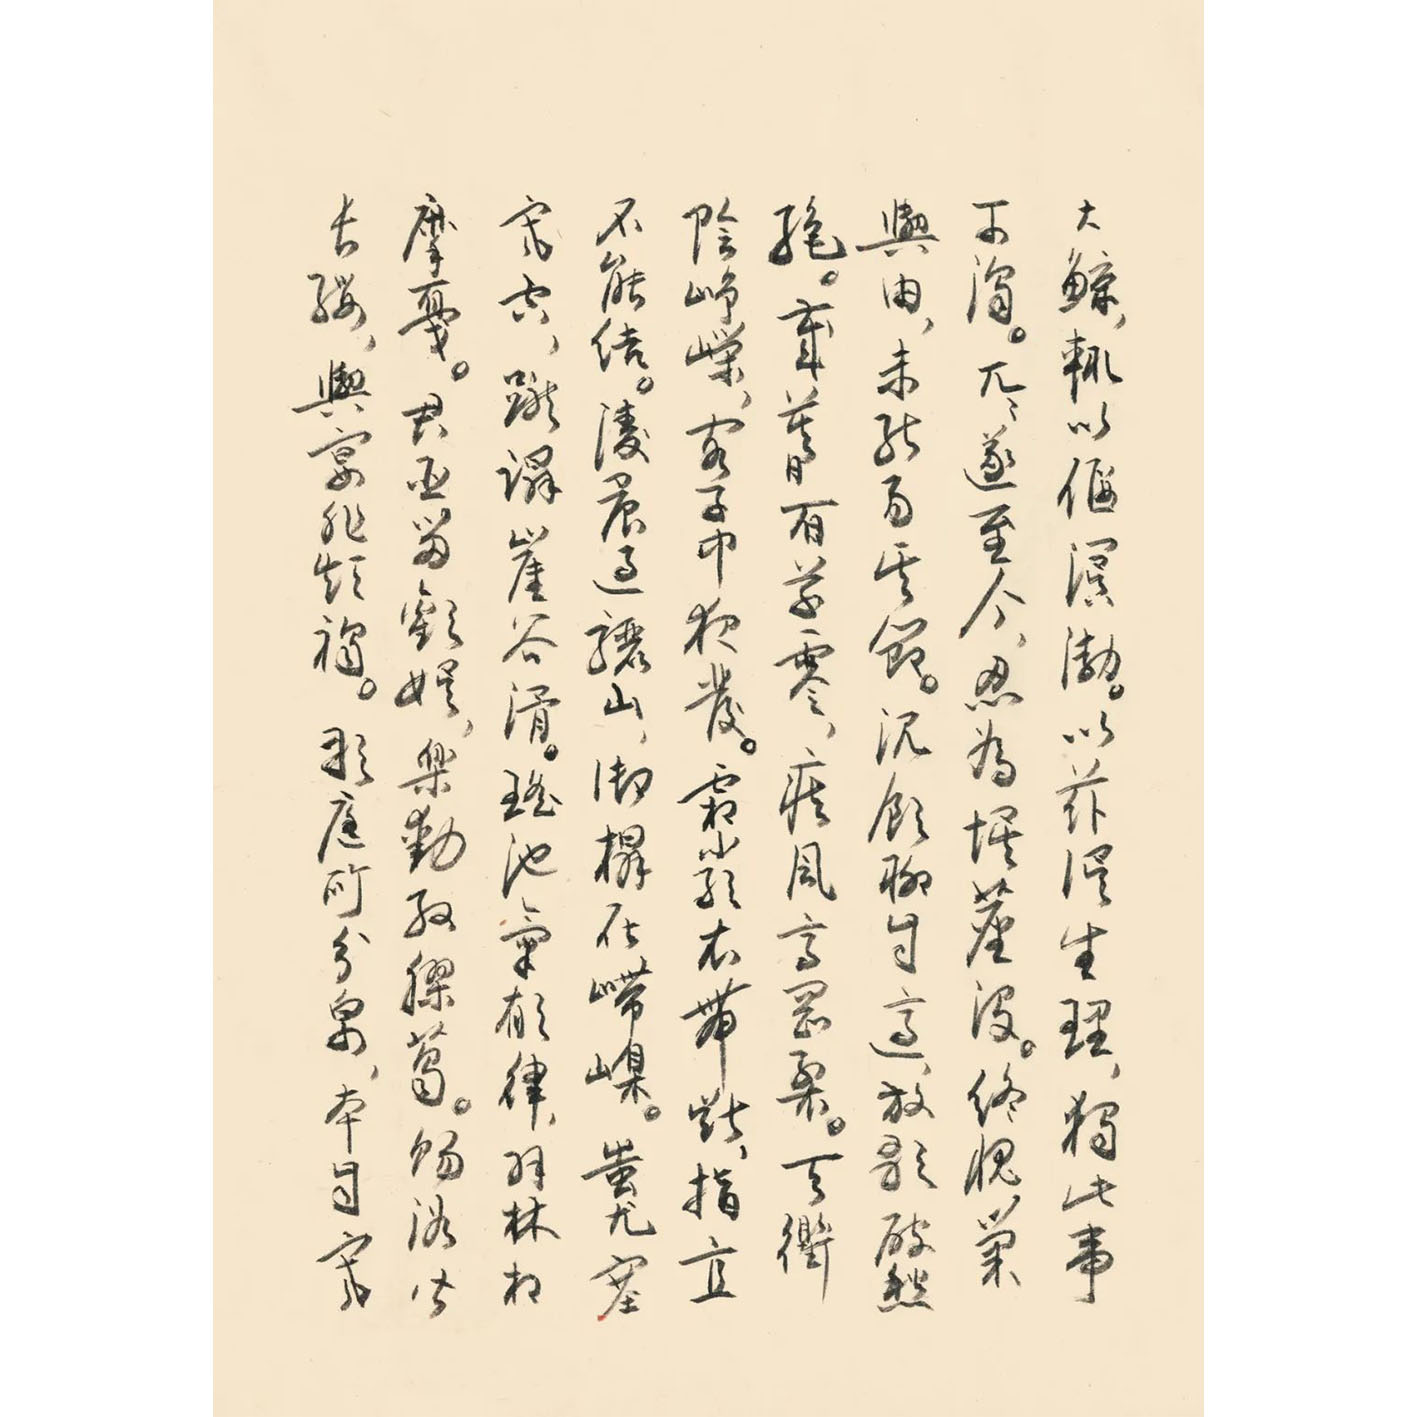 大鯨,輒以偃溟渤。以茲误生理,獨此事
干謁。兀〻遂至今,忍為埃塵沒。終愧巢
與由,未能易其節。沉飲聊自適,放歌破愁
絕。歲暮百草零,疾風高岡裂。天衢
陰崢嶸,客子中夜發。霜嚴衣帶斷,指直
不能結。凌晨過驪山,御榻在嵽嵲。蚩尤塞
寒空,蹴蹋崖谷滑。瑤池氣鬱律,羽林相
摩戛。君臣留歡娛,樂動殷膠葛。賜浴皆
長纓,與宴非短褐。彤庭所分帛,本自寒